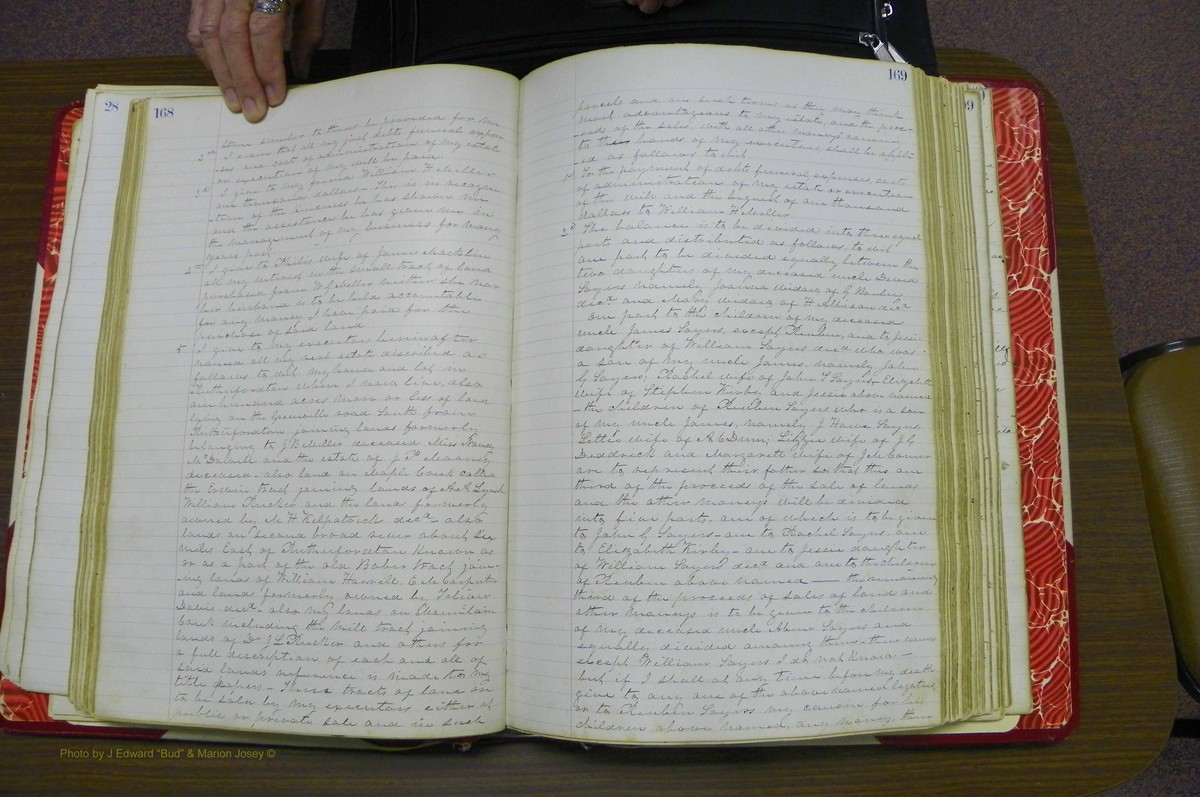 28
168
Item similar to those be provided for me
2nd I desire that all my just debts funeral expen-
-ses and cost of administration of my estate
or execution of my will be paid.
3d I give to my friend William H Miller
one thousand dollars - This is in recogni-
tion of the kindness he has shown me
and the assistance he has given me in
the management of my business for many
years past
4th I give to wife of James
all my interest in the small tract of land
purchased from W H Miller Neither she nor
her husband is to be held accountable
for any money I have paid for the
purchase of said land
5 I give to my executors hereinafter
named all my real estate described as
follows to wit my house and lot in
Rutherfordton where I now live, also
one hundred acres more or less of land
lying on the Greenville road South from
Rutherfordton joining lands formerly
belonging to J B Miller deceased Miss
McDowell and the estate of J P
deceased also land on Maple Creek called
the tract joining lands of
William Rucker and the lands formerly
owned by M H Kilpatrick decd also
lands on Second broad river about six
miles East of Rutherfordton known as
or as a part of the old Baber tract join-
-ing lands of William Harrill. C M Carpenter
and lands formerly owned by
Davis decd also my lands on Mountain
Creek including the Mill tract joining
lands of Dr J L Rucker and others for
a full description of each and all of
said lands reference is made to my
title papers - These tracts of land are
to be sold by my executors either at
public or private sale and in such
169
parcels and on such terms as they may think
most advantageous to my estate, and the proc-
-eeds of the sales, with all other moneys coming
to the hands of my executors, shall be appli-
-ed as follows to wit
1st To the payment of debts funeral expenses, cost
of administration of my estate or execution
of this will and the bequest of one thousand
dollars to William H Miller
2d The balance is to be divided into three equal
parts and distributed as follows, to wit
one part to be divided equally between the
two daughters of my deceased uncle David
Sayers namely Joanna widow of J
decd and Mary widow of H Allison decd
one part to the children of my deceased
uncle James Sayers, except Reuben, and to Jessie
daughter of William Sayers decd who was
a son of my uncle James, namely John
G Sayers, Rachel wife of John P Sayers Elizabeth
wife of Stephen Kirby and Jessie above named
- the children of Reuben Sayers who is a son
of my uncle James, namely J Hawe Sayers
Lettie wife of A C Dunn; Lizzie wife of J G
Diddreck and Margarett wife of J M Comer
are to represent their father so that this one
third of the proceeds of the sale of lands
and the other moneys will be divided
into five parts, one of which is to be given
to John G Sayers - one to Rachel Sayers one
to Elizabeth Kirby - one to Jessie daughter
of William Sayers decd and one to the children
of Reuben above named — the remaining
third of the proceeds of sales of land and
other moneys is to be given to the children
of my deceased uncle Sayers and
equally divided among them - their names
except William Sayers I do not know -
but if I shall at any time before my death
give to any one of the above named legatees
or to Reuben Sayers my cousin for his
children above named, any money, then
Photo by J Edward “Bud” & Marion Josey ©